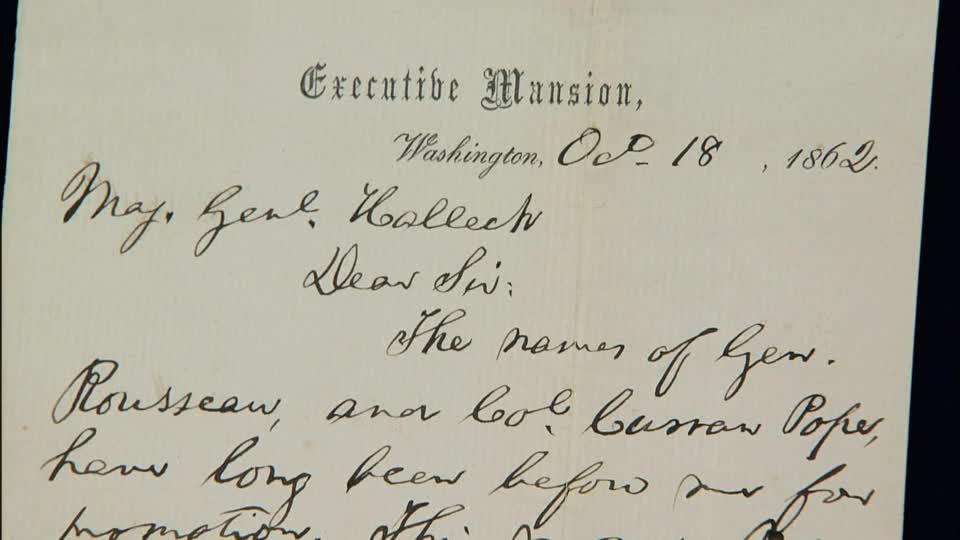 Executive Mansion,
Washington, Oct 18, 1862.
Maj. Genl. Halleck
Dear Sir:
The names of Gen.
Rousseau, and Col. Curran Pope,
have long been before me for
promotion. This